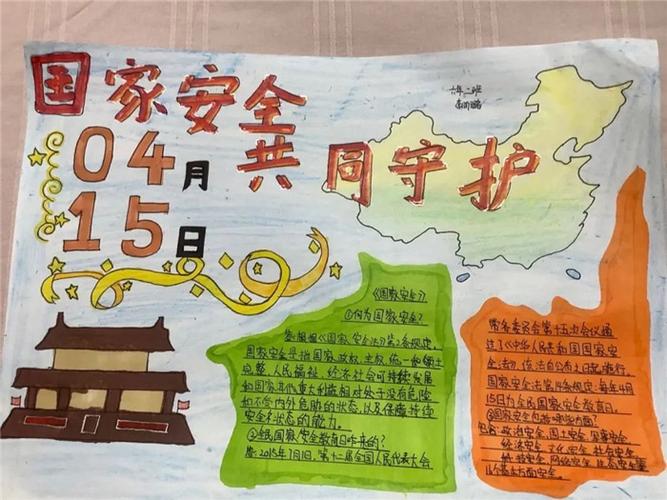 国家安全
共同守护
04月
15日
六年二班
《国家安全》
①何为国家安全?
答:根据《国家安全法》第2条规定,
国家安全是指国家政权、主权、统一和领土
完整、人民福祉、经济社会可持续发展
和国家其他重大利益相对处于没有危险
和不受内外危胁的状态,以及保障持续
安全状态的能力。
②全民国家安全教育日咋来的?
答:2015年7月1日,第十二届全国人民代表大会
常务委员会第十五次会议通
过了《中华人民共和国国家安
全法》,该法自公布之日起施行。
国家安全法第14条规定,每年4月
15日为全民国家安全教育日。
③国家安全包括哪些方面?
包含:政治安全、国土安全、军事安全、
经济安全、文化安全、社会安全、
科技安全、网络安全、生态安全